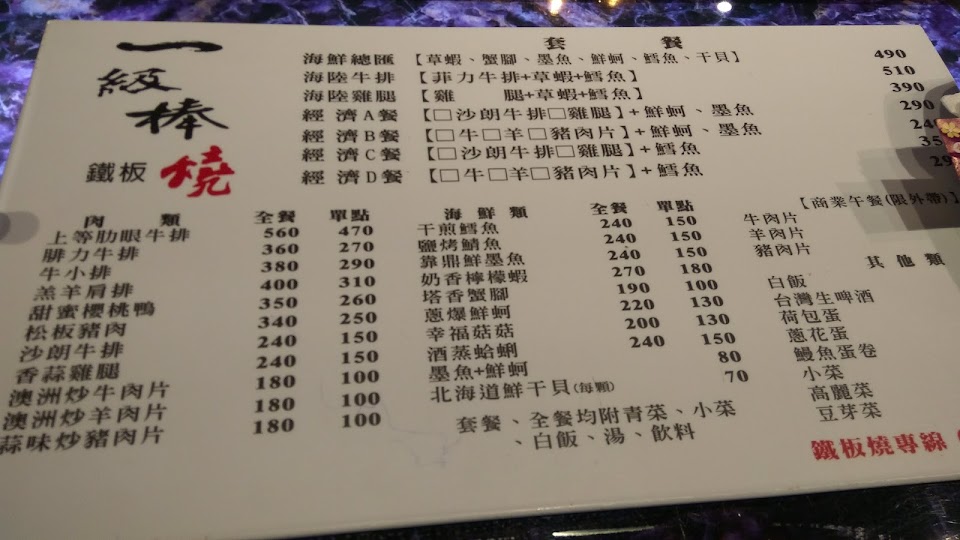 一級棒
鐵板燒
套餐
海鮮總匯【草蝦、蟹腳、墨魚、鮮蚵、鱈魚、干貝】 490
海陸牛排【菲力牛排+草蝦+鱈魚】 510
海陸雞腿【雞 腿+草蝦+鱈魚】 390
經濟A餐【□沙朗牛排□雞腿】+鮮蚵、墨魚 290
經濟B餐【□牛□羊□豬肉片】+鮮蚵、墨魚
經濟C餐【□沙朗牛排□雞腿】+鱈魚
經濟D餐【□牛□羊□豬肉片】+鱈魚
肉類 全餐 單點
上等肋眼牛排 560 470
腓力牛排 360 270
牛小排 380 290
羔羊肩排 400 310
甜蜜櫻桃鴨 350 260
松板豬肉 340 250
沙朗牛排 240 150
香蒜雞腿 240 150
澳洲炒牛肉片 180 100
澳洲炒羊肉片 180 100
蒜味炒豬肉片 180 100
海鮮類 全餐 單點
干煎鱈魚 240 150
鹽烤鯖魚 240 150
靠鼎鮮墨魚 240 150
奶香檸檬蝦 270 180
塔香蟹腳 190 100
蔥爆鮮蚵 220 130
幸福菇菇 200 130
酒蒸蛤蜊 240 150
墨魚+鮮蚵 80
北海道鮮干貝(每顆) 70
套餐、全餐均附青菜、小菜
、白飯、湯、飲料
【商業午餐(限外帶)】
牛肉片
羊肉片
豬肉片
其他類
白飯
台灣生啤酒
荷包蛋
蔥花蛋
鰻魚蛋卷
小菜
高麗菜
豆芽菜
鐵板燒專線